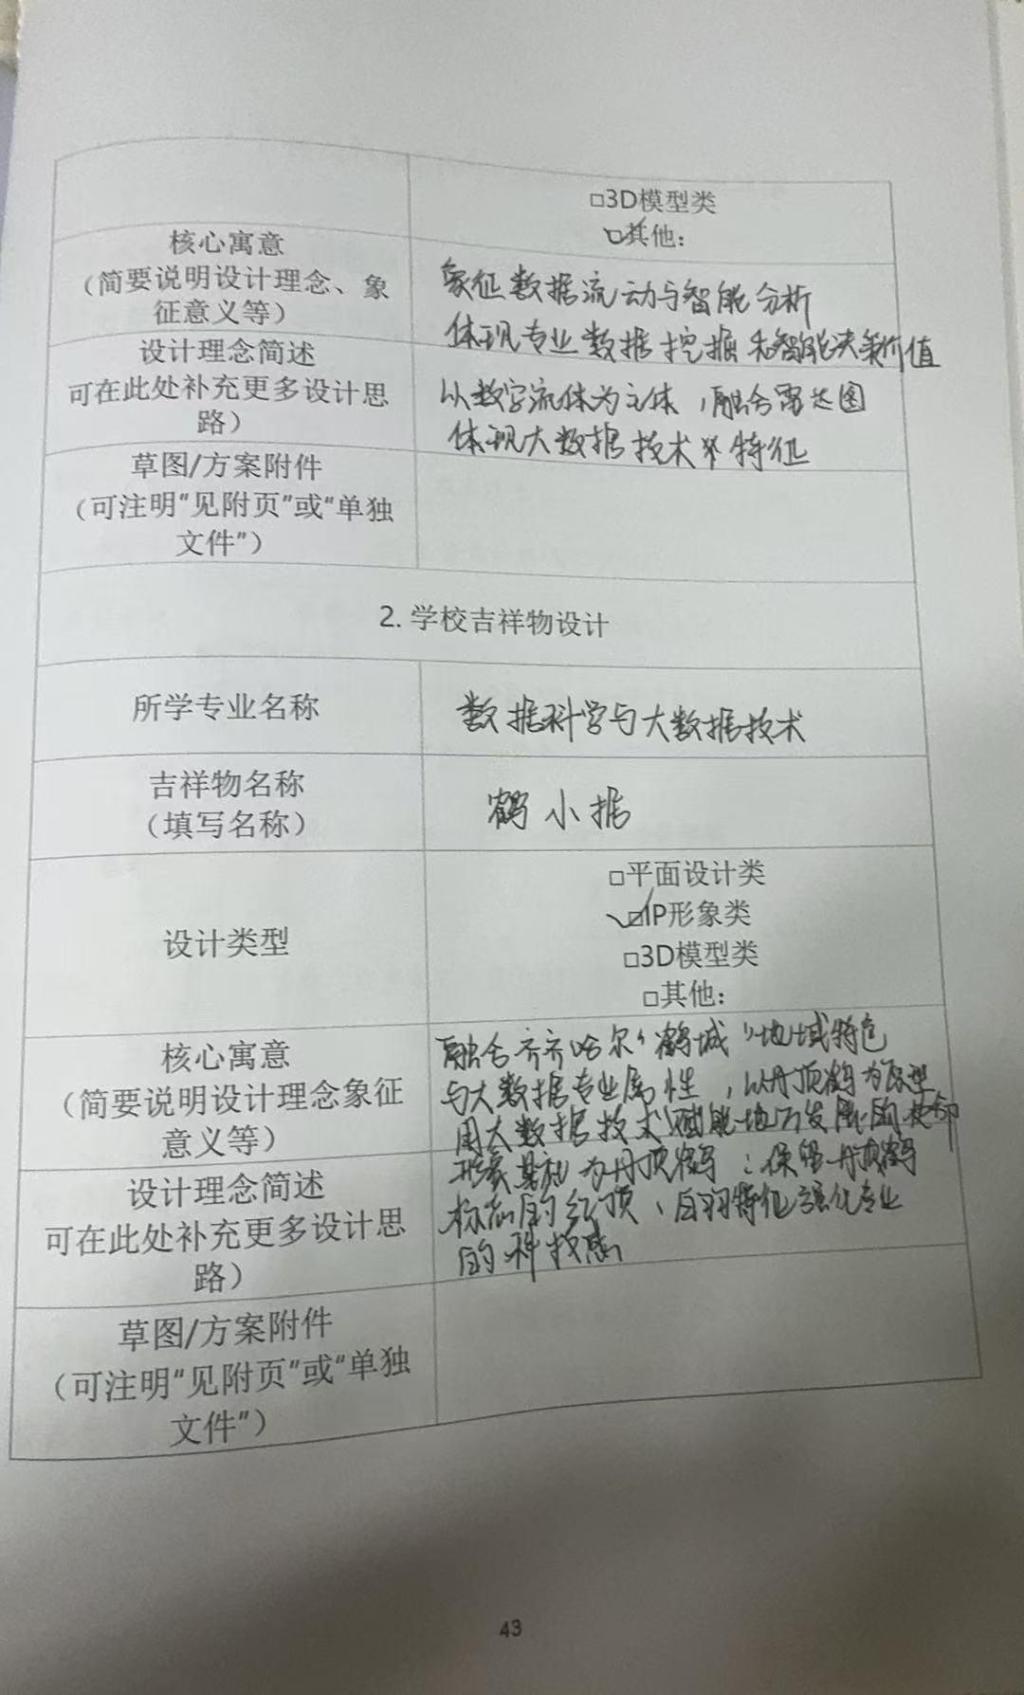 □3D模型类
□其他：
核心寓意
（简要说明设计理念、象
征意义等）
象征数据流动与智能分析
体现专业数据挖掘和智能决策价值
设计理念简述
可在此处补充更多设计思
路）
以数字流体为主体，融合雷达图
体现大数据技术 特征
草图/方案附件
（可注明“见附页”或“单独
文件”）
2. 学校吉祥物设计
所学专业名称
数据科学与大数据技术
吉祥物名称
（填写名称）
鹤小据
设计类型
□平面设计类
□IP形象类
□3D模型类
□其他：
核心寓意
（简要说明设计理念象征
意义等）
融合齐齐哈尔“鹤城”地域特色
与大数据专业属性，以丹顶鹤为原型
用大数据技术赋能地方发展的
设计理念简述
可在此处补充更多设计思
路）
形象 为丹顶鹤：保留丹顶鹤
标志的红顶、白羽特征强化专业
的科技感
草图/方案附件
（可注明“见附页”或“单独
文件”）
43